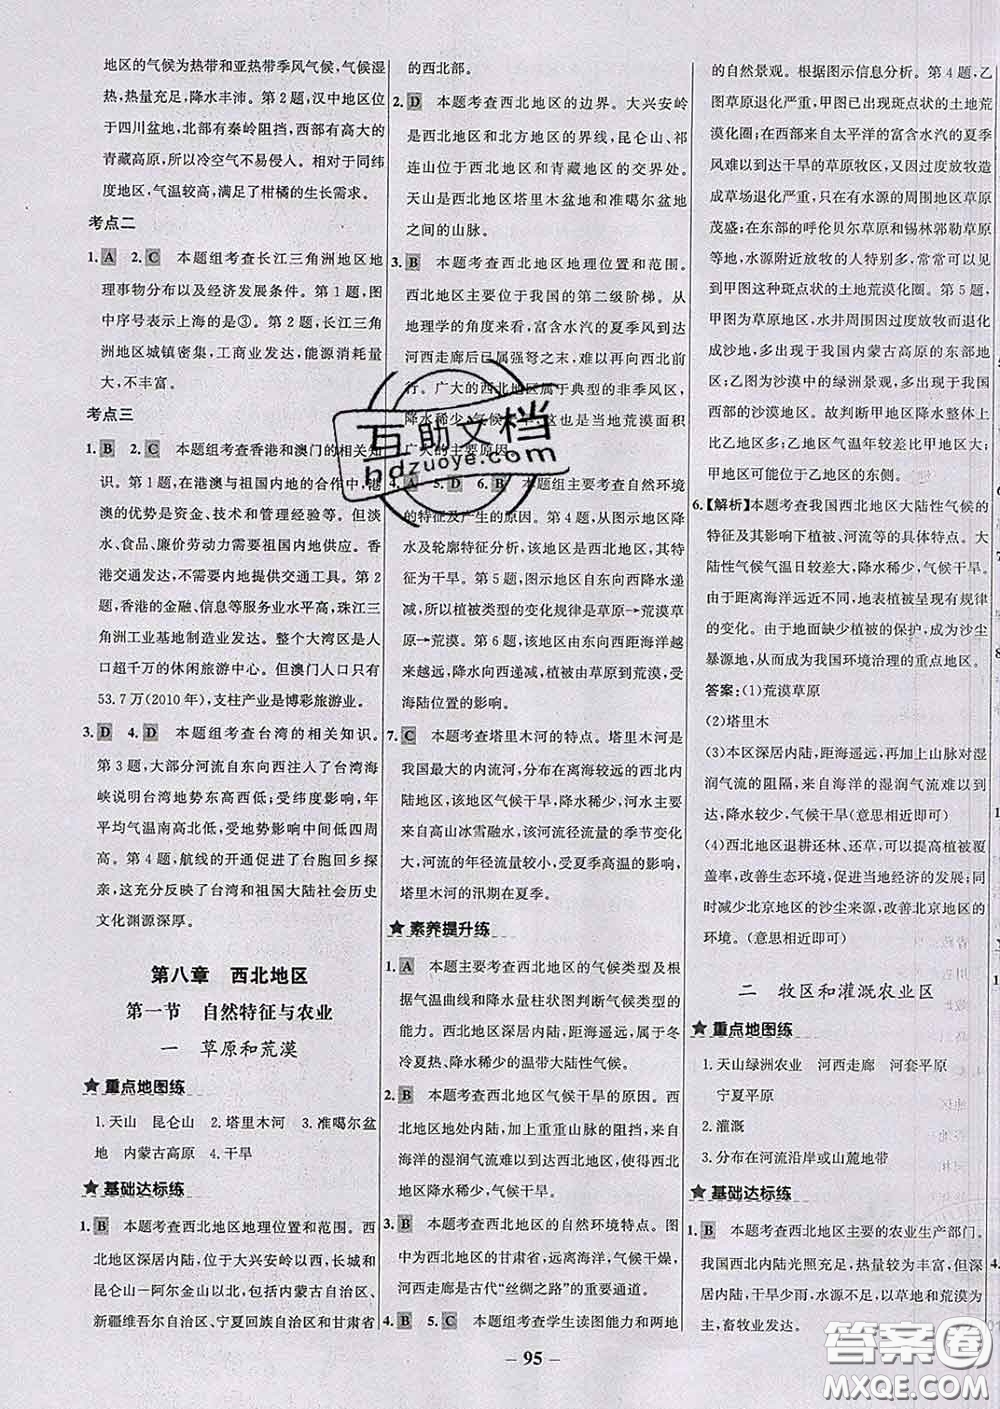 地区的气候为热带和亚热带季风气候,气候湿
热,热量充足,降水丰沛。第 2 题,汉中地区位
于四川盆地,北部有秦岭阻挡,西部有高大的
青藏高原,所以冷空气不易侵人。相对于同纬
度地区,气温较高,满足了柑橘的生长需求。
考点二
1. A 2. C 本题组考查长江三角洲地区地
理事物分布以及经济发展条件。第 1 题,图
中序号表示上海的是③。第 2 题,长江三角
洲地区城镇密集,工商业发达,能源消耗量
大,不丰富。
考点三
1. B 2. C 本题组考查香港和澳门的相关知
识。第 1 题,在港澳与祖国内地的合作中,港
澳的优势是资金、技术和管理经验等。但淡
水、食品、廉价劳动力需要祖国内地供应。香
港交通发达,不需要内地提供交通工具。第 2
题,香港的金融、信息等服务业水平高,珠江三
角洲工业基地制造业发达。整个大湾区是人
口超千万的休闲旅游中心。但澳门人口只有
53.7 万(2010 年),支柱产业是博彩旅游业。
3. D 4. D 本题组考查台湾的相关知识。
第 3 题,大部分河流自东向西注入了台湾海
峡说明台湾地势东高西低。受纬度影响,年
平均气温南高北低,受地势影响中间低四周
高。第 4 题,航线的开通促进了台胞回乡探
亲,这充分反映了台湾和祖国大陆社会历史
文化渊源深厚。
第八章 西北地区
第一节 自然特征与农业
一 草原和荒漠
★ 重点地图练
1. 天山 昆仑山 2. 塔里木河 3. 准噶尔盆
地 内蒙古高原 4. 干旱
★ 基础达标练
1. B 本题考查西北地区地理位置和范围。西
北地区深居内陆,位于大兴安岭以西,长城和
昆仑山—阿尔金山以北,包括内蒙古自治区、
新疆维吾尔自治区、宁夏回族自治区和甘肃省
的西北部。
2. D 本题考查西北地区的边界。大兴安岭
是西北地区和北方地区的界线,昆仑山、祁
连山位于西北地区和青藏地区的交界处。
天山是西北地区塔里木盆地和准噶尔盆地
之间的山脉。
3. B 本题考查西北地区地理位置和范围。
西北地区主要位于我国的第二级阶梯。从
地理学的角度来看,富含水汽的夏季风到达
河西走廊后已属强弩之末,难以再向西北前
行。广大的西北地区属于典型的非季风区,
降水稀少,气候干旱,这也是当地荒漠面积
广大的主要原因。
4. A 5. D 6. B 本题组主要考查自然环境
的特征及产生的原因。第 4 题,从图示地区降
水及轮廓特征分析,该地区是西北地区,其主
要特征为干旱。第 5 题,图示地区自东向西降水递
减,所以植被类型的变化规律是草原→荒漠草
原→荒漠。第 6 题,该地区由东向西距海洋越
来越远,降水递减,植被由草原到荒漠,受
海陆位置的影响。
7. C 本题考查塔里木河的特点。塔里木河是
我国最大的内流河,分布在离海较远的西北内
陆地区,该地区气候干旱,降水稀少,河水主要
来自高山冰雪融水,该河流径流量的季节变化
大,河流的年径流量较小,受夏季高温的影响,
塔里木河的汛期在夏季。
★ 素养提升练
1. A 本题主要考查西北地区的气候类型及根
据气温曲线和降水量柱状图判断气候类型的
能力。西北地区深居内陆,距海遥远,属于冬
冷夏热、降水稀少的温带大陆性气候。
2. B 本题考查西北地区气候干旱的原因。西
北地区地处内陆,加上重重山脉的阻挡,来自
海洋的湿润气流难以到达,使得西北地区降
水稀少,气候干旱。
3. B 本题考查西北地区的自然环境特点。图
中为西北地区的甘肃省,远离海洋,气候干燥,
河西走廊是古代“丝绸之路”的重要通道。
4. B 5. C 本题组考查学生读图能力和两地
的自然景观。根据图示信息分析。第 4 题,乙
图草原退化严重,甲图已出现斑点状的土地荒
漠化圈;在西部来自太平洋的富含水汽的夏季
风难以到达干旱的草原牧区,又因过度放牧造
成草场退化严重,只在有水源的周围地区草原
茂盛;在东部的呼伦贝尔草原和锡林郭勒草原
等地,水源附近放牧的人特别多,常常可以见
到甲图这种斑点状的土地荒漠化圈。第 5 题,
甲图为草原地区,水井周围因过度放牧草原变
成沙地,多出现于我国内蒙古高原的东部地
区;乙图为沙漠中的绿洲景观,多出现于我国
西部的沙漠地区。故判断甲地区降水整体上
比乙地区多;乙地区气温年较差比甲地区大;
甲地区可能位于乙地区的东侧。
6.【解析】本题考查我国西北地区大陆性气候的
特征及其影响下植被、河流等的具体特点。大
陆性气候气温日较差大,降水稀少,气候干旱。
由于距离海洋远近不同,地表植被呈现有规律
的变化。由于地面缺少植被的保护,成为沙尘
暴源地,从而成为我国环境治理的重点地区。
答案:(1)荒漠草原
(2)塔里木
(3)本区深居内陆,距海遥远,再加上山脉对湿
润气流的阻隔,来自海洋的湿润气流难以到
达,降水较少,气候干旱(意思相近即可)
(4)西北地区退耕还林、还草,可以提高植被覆
盖率,改善生态环境,促进当地经济的发展;同
时减少北京地区的沙尘来源,改善北京地区的
环境。(意思相近即可)
二 牧区和灌溉农业区
★ 重点地图练
1. 天山绿洲农业 河西走廊 河套平原
宁夏平原
2. 灌溉
3. 分布在河流沿岸或山麓地带
★ 基础达标练
1. B 本题考查西北地区主要的农业生产部门。
我国西北内陆光照充足,热量较为丰富,但深
居内陆,干旱少雨,水源不足,以草地和荒漠为
主,畜牧业发达。
— 95 —
互助文档
hdzuoye.com
答案圈
MXQE.COM